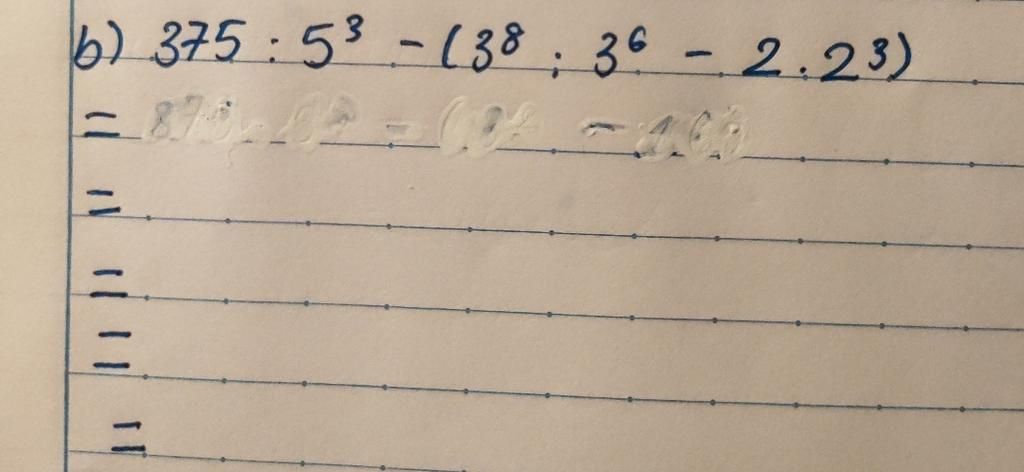 b) 375 : 5³ - (3⁸ : 3⁶ - 2 . 2³)
=
=
=
=
=